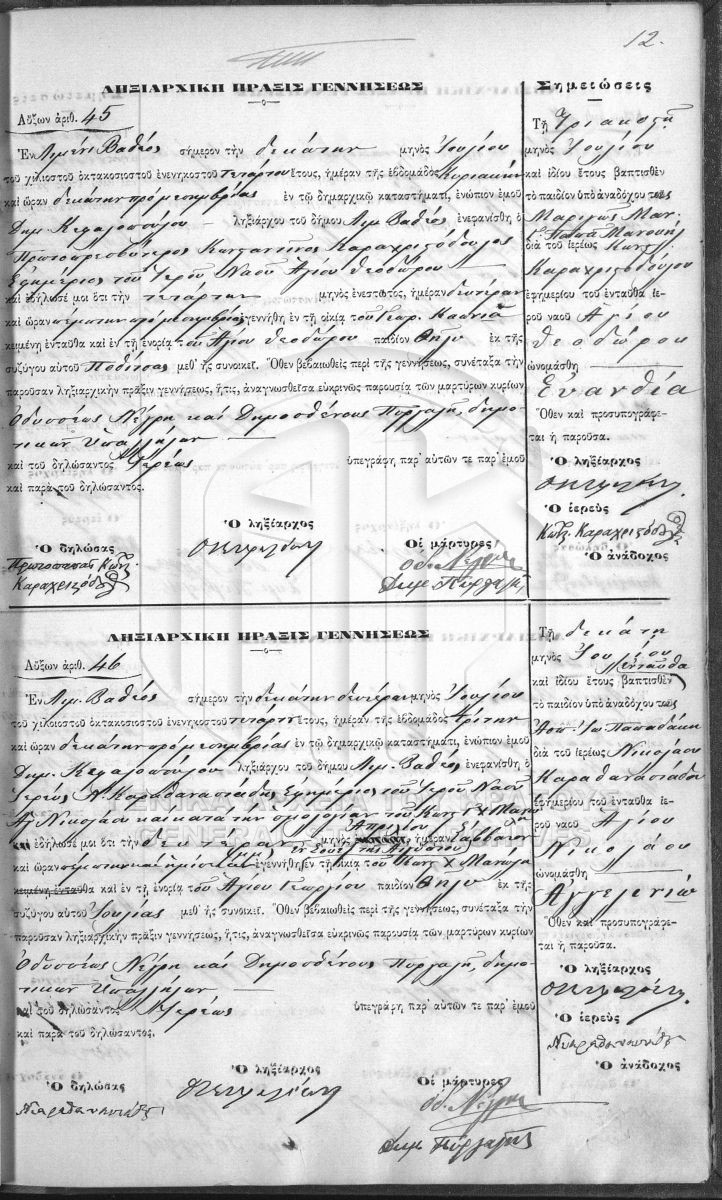 12.
ΛΗΞΙΑΡΧΙΚΗ ΠΡΑΞΙΣ ΓΕΝΝΗΣΕΩΣ
Αὔξων ἀριθ. 45
Ἐν Λιμένι Βαθέος σήμερον τὴν δεκάτην μηνὸς Ἰουλίου
τοῦ χιλιοστοῦ ὀκτακοσιοστοῦ ἐνενηκοστοῦ τετάρτου ἔτους, ἡμέραν τῆς ἑβδομάδος Κυριακὴν
καὶ ὥραν δεκάτην πρὸ μεσημβρίας ἐν τῷ δημαρχικῷ καταστήματι, ἐνώπιον ἐμοῦ
Δημ. Κεφαλοπούλου ληξιάρχου τοῦ δήμου Λιμ. Βαθέος ἐνεφανίσθη ὁ
Πρωτοπρεσβύτερος Κωνσταντῖνος Καραχριστόδουλος
Ἐφημέριος τοῦ Ἱεροῦ Ναοῦ Ἁγίου Θεοδώρου
καὶ ἐδήλωσέ μοι ὅτι τὴν τετάρτην μηνὸς ἐνεστῶτος, ἡμέραν δευτέραν
καὶ ὥραν πέμπτην πρὸ μεσημβρίας ἐγεννήθη ἐν τῇ οἰκίᾳ τοῦ Γεωρ.
κειμένῃ ἐνταῦθα καὶ ἐν τῇ ἐνορίᾳ τοῦ Ἁγίου Θεοδώρου παιδίον θῆλυ ἐκ τῆς
συζύγου αὐτοῦ μεθ' ἧς συνοικεῖ. Ὅθεν βεβαιωθεὶς περὶ τῆς γεννήσεως, συνέταξα τὴν
παροῦσαν ληξιαρχικὴν πρᾶξιν γεννήσεως, ἥτις, ἀναγνωσθεῖσα εὐκρινῶς παρουσίᾳ τῶν μαρτύρων κυρίων
Ὀδυσσέως Νέγρη καὶ Δημοσθένους δημο-
τικῶν ὑπαλλήλων
καὶ τοῦ δηλώσαντος Ἱερέως ὑπεγράφη παρ' αὐτῶν τε παρ' ἐμοῦ
καὶ παρὰ τοῦ δηλώσαντος.
Ὁ ληξίαρχος
Ὁ δηλώσας
Οἱ μάρτυρες
Πρωτοπαπᾶς Κωνζ.
Καραχριστόδ
Σημειώσεις
Τῇ Τριακοστῇ
μηνὸς Ἰουλίου
καὶ ἰδίου ἔτους βαπτισθὲν
τὸ παιδίον ὑπὸ ἀναδόχου τῆς
διὰ τοῦ ἱερέως Κωνζ.
Καραχριστοδούλου
ἐφημερίου τοῦ ἐνταῦθα ἱε-
ροῦ ναοῦ Ἁγίου
Θεοδώρου
ὠνομάσθη
Εὐανθία
Ὅθεν καὶ προσυπογράφε-
ται ἡ παροῦσα.
Ὁ ληξίαρχος
Ὁ ἱερεὺς
Κωνζ. Καραχριστόδ
Ὁ ἀνάδοχος
ΛΗΞΙΑΡΧΙΚΗ ΠΡΑΞΙΣ ΓΕΝΝΗΣΕΩΣ
Αὔξων ἀριθ. 46
Ἐν Λιμ. Βαθέος σήμερον τὴν δεκάτην δευτέραν μηνὸς Ἰουλίου
τοῦ χιλιοστοῦ ὀκτακοσιοστοῦ ἐνενηκοστοῦ τετάρτου ἔτους, ἡμέραν τῆς ἑβδομάδος Τρίτην
καὶ ὥραν δεκάτην πρὸ μεσημβρίας ἐν τῷ δημαρχικῷ καταστήματι, ἐνώπιον ἐμοῦ
Δημ. Κεφαλοπούλου ληξιάρχου τοῦ δήμου Λιμ. Βαθέος ἐνεφανίσθη ὁ
Ἱερεὺς Ν. Καραθανασιάδης Ἐφημέριος τοῦ Ἱεροῦ Ναοῦ
Ἁγ. Νικολάου καὶ κατὰ τὴν ὁμολογίαν τοῦ Κωνζ.
καὶ ἐδήλωσέ μοι ὅτι τὴν δευτέραν μηνὸς Ἀπριλίου ἡμέραν Σάββατον
καὶ ὥραν πέμπτην ἐγεννήθη ἐν τῇ οἰκίᾳ τοῦ Κωνζ. Χ
κειμένῃ ἐνταῦθα καὶ ἐν τῇ ἐνορίᾳ τοῦ Ἁγίου Γεωργίου παιδίον θῆλυ ἐκ τῆς
συζύγου αὐτοῦ Ἰουλίας μεθ' ἧς συνοικεῖ. Ὅθεν βεβαιωθεὶς περὶ τῆς γεννήσεως, συνέταξα τὴν
παροῦσαν ληξιαρχικὴν πρᾶξιν γεννήσεως, ἥτις, ἀναγνωσθεῖσα εὐκρινῶς παρουσίᾳ τῶν μαρτύρων κυρίων
Ὀδυσσέως Νέγρη καὶ Δημοσθένους δημο-
τικῶν ὑπαλλήλων
καὶ τοῦ δηλώσαντος Ἱερέως ὑπεγράφη παρ' αὐτῶν τε παρ' ἐμοῦ
καὶ παρὰ τοῦ δηλώσαντος.
Ὁ ληξίαρχος
Ὁ δηλώσας
Οἱ μάρτυρες
Τῇ δεκάτῃ
μηνὸς Ἰουλίου
ἐνταῦθα
καὶ ἰδίου ἔτους βαπτισθὲν
τὸ παιδίον ὑπὸ ἀναδόχου τῆς
Παπαδάκη
διὰ τοῦ ἱερέως Νικολάου
Καραθανασιάδου
ἐφημερίου τοῦ ἐνταῦθα ἱε-
ροῦ ναοῦ Ἁγίου
Νικολάου
ὠνομάσθη
Ἀγγελικὼ
Ὅθεν καὶ προσυπογράφε-
ται ἡ παροῦσα.
Ὁ ληξίαρχος
Ὁ ἱερεὺς
Ὁ ἀνάδοχος
ΓΕΝΙΚΑ ΑΡΧΕΙΑ ΤΟΥ ΚΡΑΤΟΥΣ
GENERAL STATE ARCHIVES